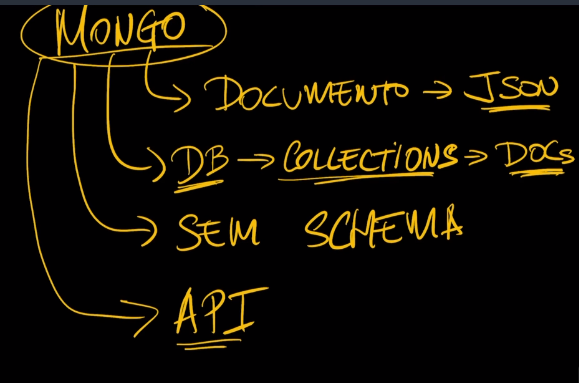 MONGO
DOCUMENTO → JSON
DB → COLLECTIONS → DOCs
SEM SCHEMA
API